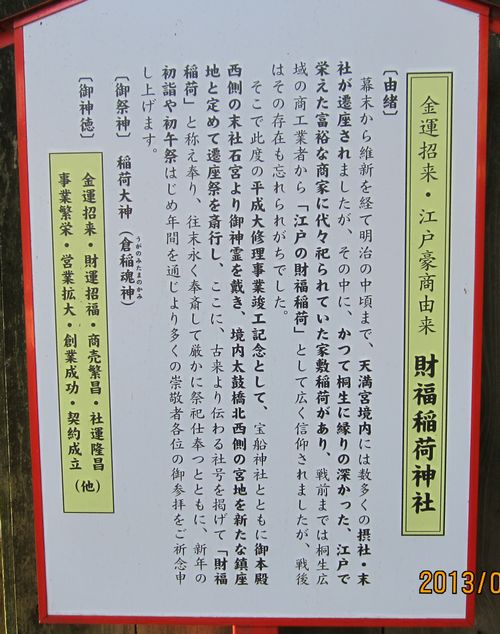 金運招来・江戸豪商由来 財福稲荷神社
〔由緒〕
幕末から維新を経て明治の中頃まで、天満宮境内には数多くの摂社・末
社が遷座されましたが、その中に、かつて桐生に縁りの深かった、江戸で
栄えた富裕な商家に代々祀られていた家敷稲荷があり、戦前までは桐生広
域の商工業者から「江戸の財福稲荷」として広く信仰されましたが、戦後
はその存在も忘れられがちでした。
そこで此度の平成大修理事業竣工記念として、宝船神社とともに御本殿
西側の末社石宮より御神霊を戴き、境内太鼓橋北西側の宮地を新たな鎮座
地と定めて遷座祭を斎行し、ここに、古来より伝わる社号を掲げて「財福
稲荷」と称え奉り、往末永く奉斎して厳かに祭祀仕奉つとともに、新年の
初詣や初午祭はじめ年間を通じより多くの崇敬者各位の御参拝をご祈念申
し上げます。
〔御祭神〕 稲荷大神(倉稲魂神)
うがのみたまのかみ
〔御神徳〕
金運招来・財運招福・商売繁昌・社運隆昌
事業繁栄・営業拡大・創業成功・契約成立(他)
2013/0